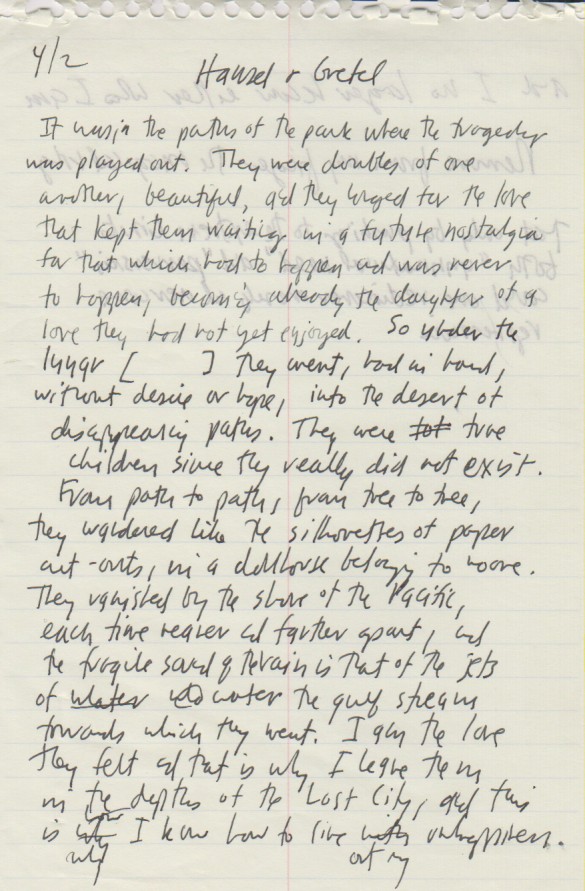 4/2
Hansel & Gretel
It was in the paths of the park where the tragedy
was played out. They were doubles of one
another, beautiful, and they longed for the love
that kept them waiting in a future nostalgia
for that which had to happen and was never
to happen, becoming already the daughter of a
love they had not yet enjoyed. So under the
lunar [ ] they went, hand in hand,
without desire or hope, into the desert of
disappearing paths. They were tot true
children since they really did not exist.
From path to path, from tree to tree,
they wandered like the silhouettes of paper
cut-outs, in a dollhouse belonging to no one.
They vanished by the shore of the Pacific,
each time nearer and farther apart, and
the fragile sound of the rain is that of the jets
of water water the gulf stream
towards which they went. I am the love
they felt and that is why I leave them
in the depths of the Lost City, and this
is why I know how to live unhappiness.
why out my